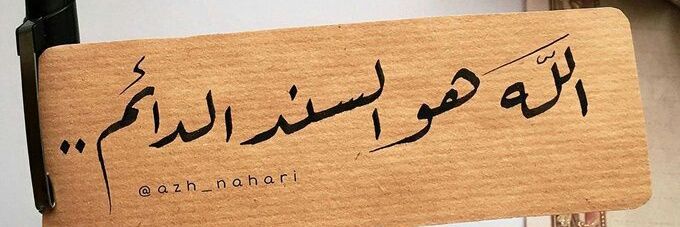 اللّه هو السند الدائم..
@azh_nahari